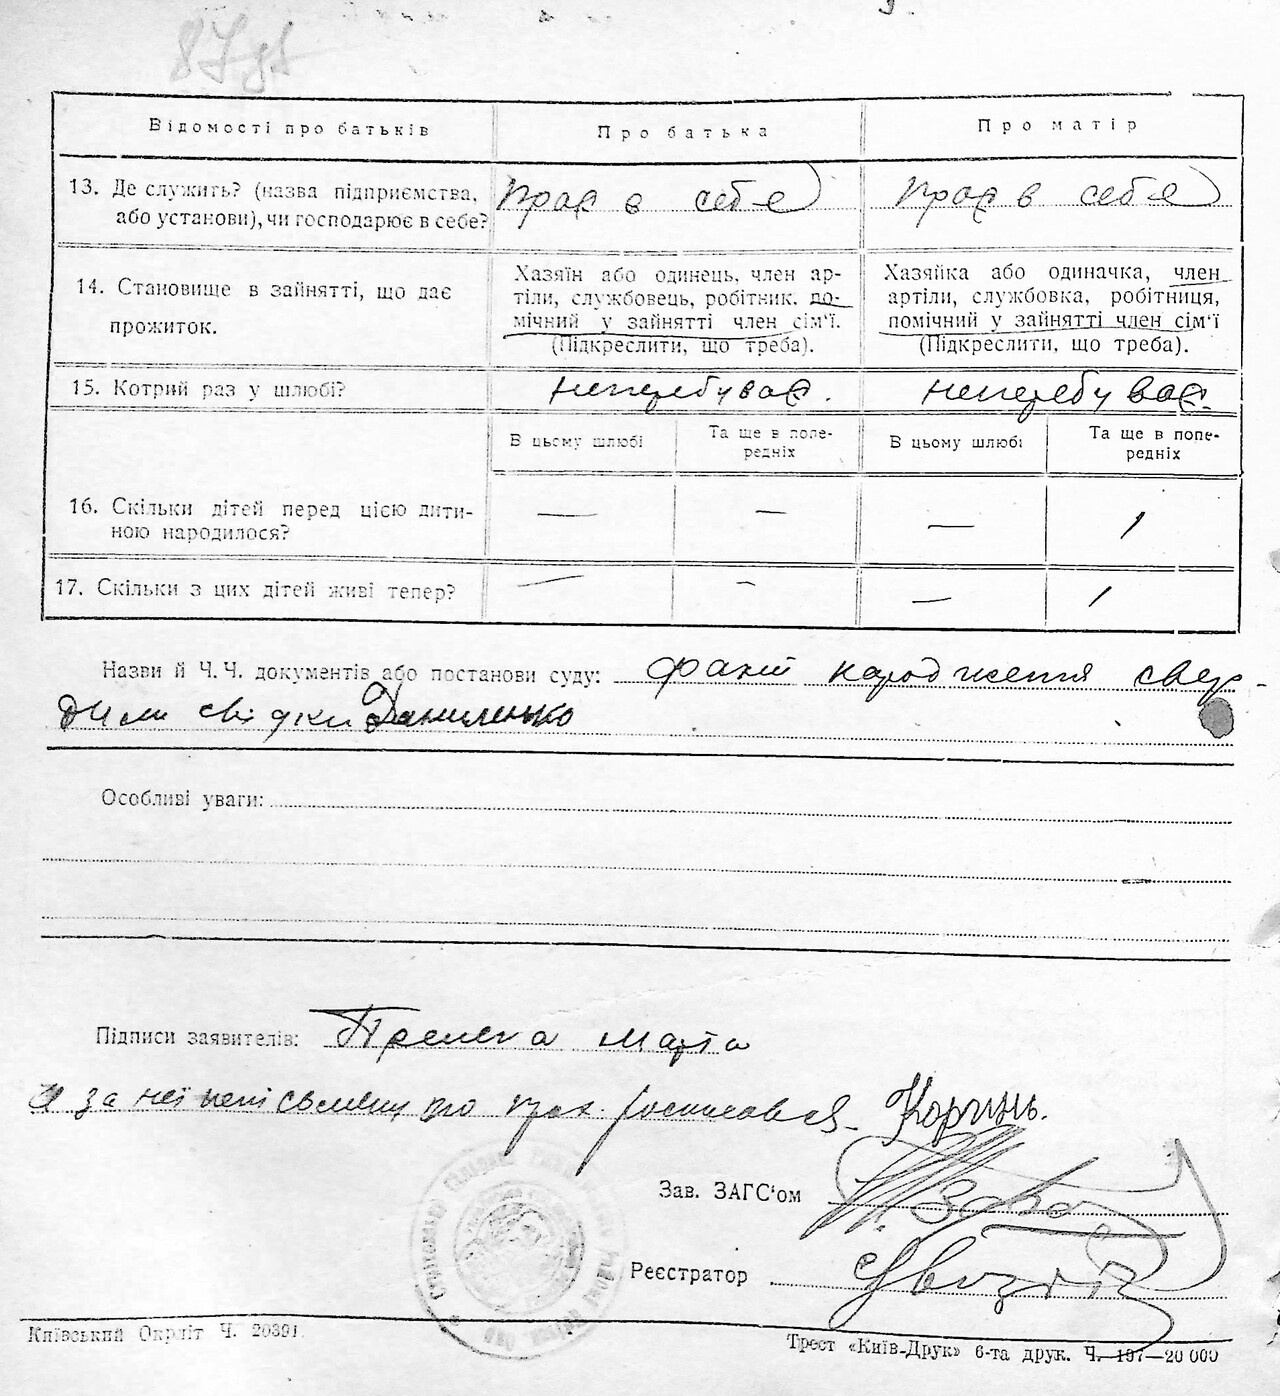 87 зв
Відомості про батьків
Про батька
Про матір
13. Де служить? (назва підприємства, або установи), чи господарює в себе?
Прац в себе
Прац в себе
14. Становище в зайнятті, що дає прожиток.
Хазяїн або одинець, член ар-
тіли, службовець, робітник. по-
мічний у зайнятті член сім'ї.
(Підкреслити, що треба).
Хазяйка або одиначка, член
артіли, службовка, робітниця,
помічний у зайнятті член сім'ї
(Підкреслити, що треба).
15. Котрий раз у шлюбі?
неперебуває.
неперебуває.
В цьому шлюбі
Та ще в попе-
редніх
В цьому шлюбі
Та ще в попе-
редніх
16. Скільки дітей перед цією дити-
ною народилося?
— — — 1
17. Скільки з цих дітей живі тепер?
— — — 1
Назви й Ч. Ч. документів або постанови суду: факт народження свер-
дили свідки Даниленко
Особливі уваги:
Підписи заявителів: Марта
а за неї неписьменну по прох. росписався Коринь.
Зав. ЗАГС'ом
Реєстратор
Київський Окрліт Ч. 20391.
Трест «Київ-Друк» 6-та друк. Ч. 197—20 000